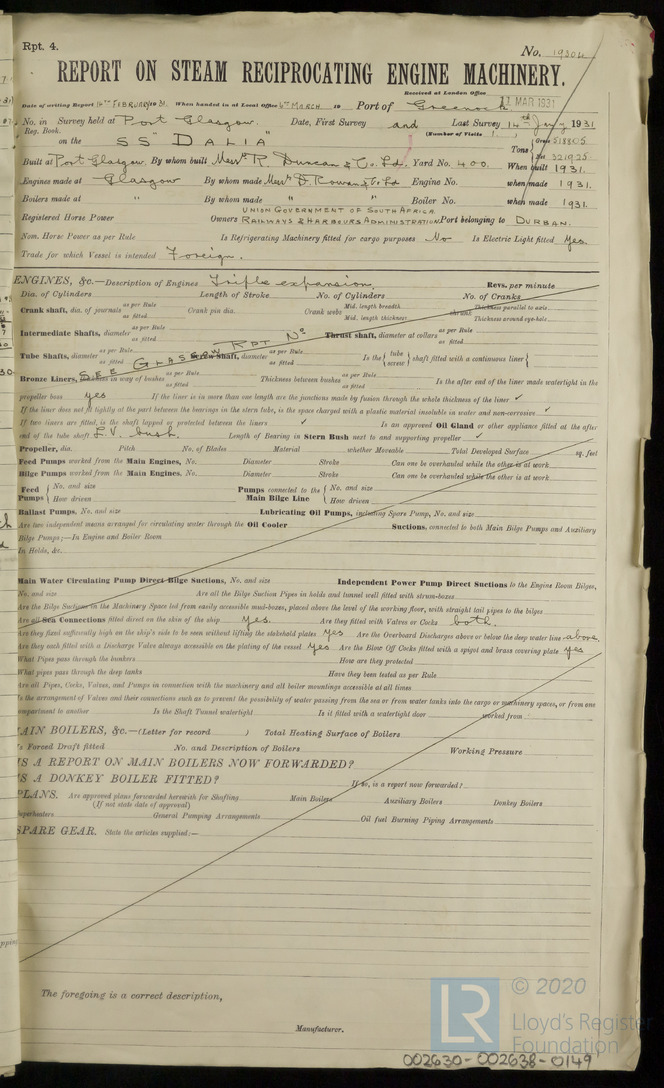 Rpt. 4.
No. 19304
REPORT ON STEAM RECIPROCATING ENGINE MACHINERY.
Received at London Office
17 MAR 1931
Date of writing Report 14TH FEBRUARY 1931 When handed in at Local Office 6TH MARCH 19 Port of Greenock
No. in Survey held at Port Glasgow. Date, First Survey and Last Survey 14th Jany 1931
Reg. Book. (Number of Visits 1.
on the SS "DALIA" Tons Gross 5188.05
Net 3219.25
Built at Port Glasgow. By whom built Messrs R. Duncan & Co. Ld. Yard No. 400. When built 1931.
Engines made at Glasgow By whom made Messrs D. Rowan & Co Ld Engine No. when made 1931.
Boilers made at " By whom made " " Boiler No. when made 1931.
Registered Horse Power Owners UNION GOVERNMENT OF SOUTH AFRICA
RAILWAYS & HARBOURS ADMINISTRATION Port belonging to DURBAN.
Nom. Horse Power as per Rule Is Refrigerating Machinery fitted for cargo purposes No Is Electric Light fitted Yes.
Trade for which Vessel is intended Foreign.
ENGINES, &c.—Description of Engines Triple expansion. Revs. per minute
Dia. of Cylinders Length of Stroke No. of Cylinders No. of Cranks
Crank shaft, dia. of journals as per Rule as fitted Crank pin dia. Crank webs Mid. length breadth Mid. length thickness shrunk Thickness parallel to axis Thickness around eye-hole
Intermediate Shafts, diameter as per Rule as fitted Thrust shaft, diameter at collars as per Rule as fitted
SEE GLASGOW RPT No
Tube Shafts, diameter as per Rule as fitted Screw Shaft, diameter as per Rule as fitted Is the { tube screw } shaft fitted with a continuous liner {
Bronze Liners, thickness in way of bushes as per Rule as fitted Thickness between bushes as per Rule as fitted Is the after end of the liner made watertight in the
propeller boss yes If the liner is in more than one length are the junctions made by fusion through the whole thickness of the liner ✓
If the liner does not fit tightly at the part between the bearings in the stern tube, is the space charged with a plastic material insoluble in water and non-corrosive ✓
If two liners are fitted, is the shaft lapped or protected between the liners ✓ Is an approved Oil Gland or other appliance fitted at the after
end of the tube shaft L.V. bush. Length of Bearing in Stern Bush next to and supporting propeller ✓
Propeller, dia. Pitch No. of Blades Material whether Moveable Total Developed Surface sq. feet
Feed Pumps worked from the Main Engines, No. Diameter Stroke Can one be overhauled while the other is at work
Bilge Pumps worked from the Main Engines, No. Diameter Stroke Can one be overhauled while the other is at work
Feed Pumps { No. and size How driven Pumps connected to the Main Bilge Line { No. and size How driven
Ballast Pumps, No. and size Lubricating Oil Pumps, including Spare Pump, No. and size
Are two independent means arranged for circulating water through the Oil Cooler Suctions, connected to both Main Bilge Pumps and Auxiliary
Bilge Pumps;—In Engine and Boiler Room
In Holds, &c.
Main Water Circulating Pump Direct Bilge Suctions, No. and size Independent Power Pump Direct Suctions to the Engine Room Bilges,
No. and size Are all the Bilge Suction Pipes in holds and tunnel well fitted with strum-boxes
Are the Bilge Suctions in the Machinery Space led from easily accessible mud-boxes, placed above the level of the working floor, with straight tail pipes to the bilges
Are all Sea Connections fitted direct on the skin of the ship yes. Are they fitted with Valves or Cocks both.
Are they fixed sufficiently high on the ship's side to be seen without lifting the stokehold plates yes Are the Overboard Discharges above or below the deep water line above.
Are they each fitted with a Discharge Valve always accessible on the plating of the vessel Yes. Are the Blow Off Cocks fitted with a spigot and brass covering plate yes
What Pipes pass through the bunkers How are they protected
What pipes pass through the deep tanks Have they been tested as per Rule
Are all Pipes, Cocks, Valves, and Pumps in connection with the machinery and all boiler mountings accessible at all times
Is the arrangement of Valves and their connections such as to prevent the possibility of water passing from the sea or from water tanks into the cargo or machinery spaces, or from one
compartment to another Is the Shaft Tunnel watertight Is it fitted with a watertight door worked from
MAIN BOILERS, &c.—(Letter for record ) Total Heating Surface of Boilers
Is Forced Draft fitted No. and Description of Boilers Working Pressure
IS A REPORT ON MAIN BOILERS NOW FORWARDED?
IS A DONKEY BOILER FITTED? If so, is a report now forwarded?
PLANS. Are approved plans forwarded herewith for Shafting Main Boilers Auxiliary Boilers Donkey Boilers
(If not state date of approval)
Superheaters General Pumping Arrangements Oil fuel Burning Piping Arrangements
SPARE GEAR. State the articles supplied:—
The foregoing is a correct description,
Manufacturer.
LR
© 2020
Lloyd's Register
Foundation
002630-002638-0149